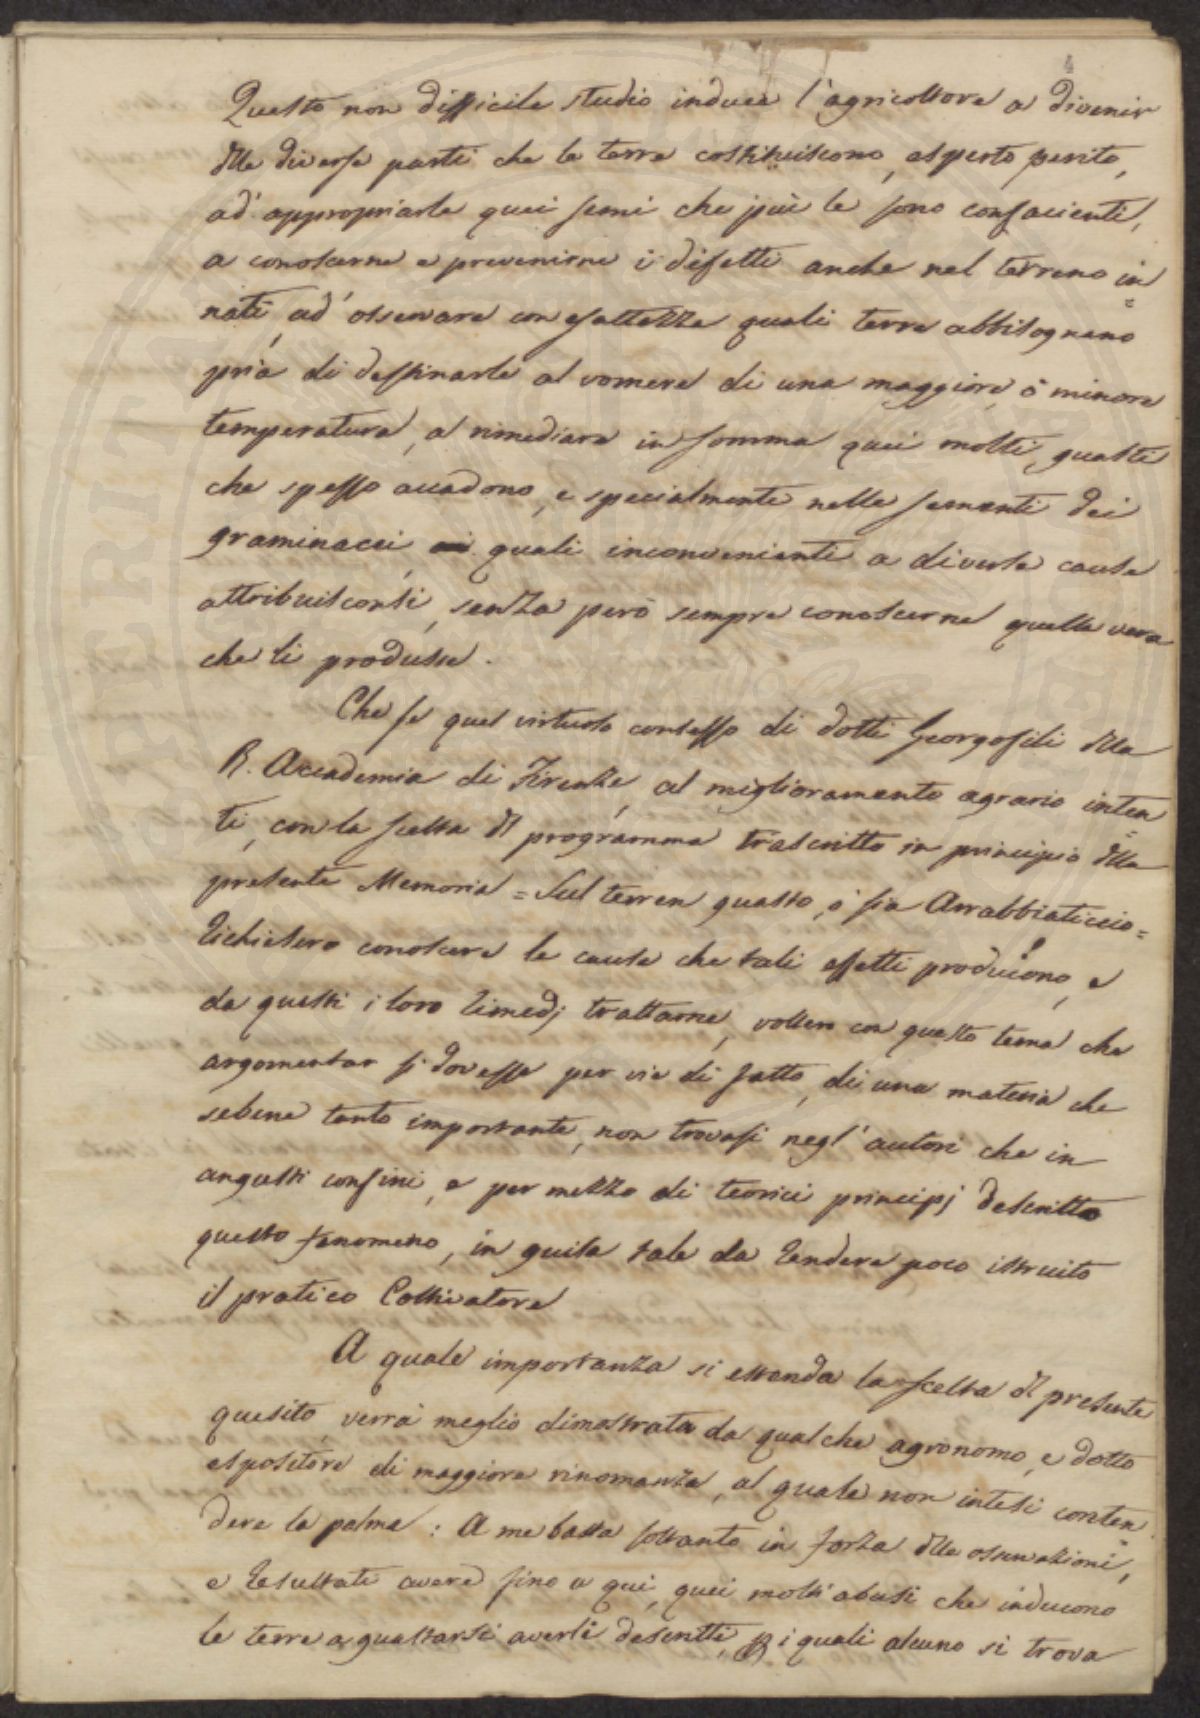 4
Questo non difficile studio induce l'agricoltore a divenir
dlle diverse parti che la terra costituiscono, asperto perito,
ad appropriarle quei semi che più le sono confacienti,
a conoscerne e prevenirne i difetti anche nel terreno in=
nati, ad osservare con esattezza quali terre abbisognano
pria di destinarle al vomere di una maggiore, o minore
temperatura, a rimediare in somma quei molti guasti
che spesso accadono, e specialmente nelle sementi dei
graminacei, quali inconvenienti a diverse cause
attribuisconsi, senza però sempre conoscerne quella vera
che li produsse.
Che se quel virtuoso consesso di dotti Georgofili dlla
R. Accademia di Firenze, al miglioramento agrario inten=
ti, con la scelta dl programma trascritto in principio dlla
presente Memoria = Sul terren guasto, o sia Arrabbiaticcio=
Richiesero conoscere le cause che tali effetti producono, e
da questi i loro rimedj trattarne, vollero con questo tema che
argomentar si dovesse per via di fatto, di una materia che
sebene tanto importante, non trovasi negl'autori che in
angusti confini, e per mezzo di teorici principj descritto
questo fenomeno, in guisa tale da rendere poco istruito
il pratico Coltivatore
A quale importanza si estenda la scelta dl presente
quesito, verrà meglio dimostrata da qualche agronomo, e dotto
espositore di maggiore rinomanza, al quale non intesi conten=
dere la palma: A me basta soltanto in forza dlle osservazioni,
e resultati avere fino a qui, quei molti abusi che inducono
le terre a guastarsi averli descritti, p i quali alcuno si trova